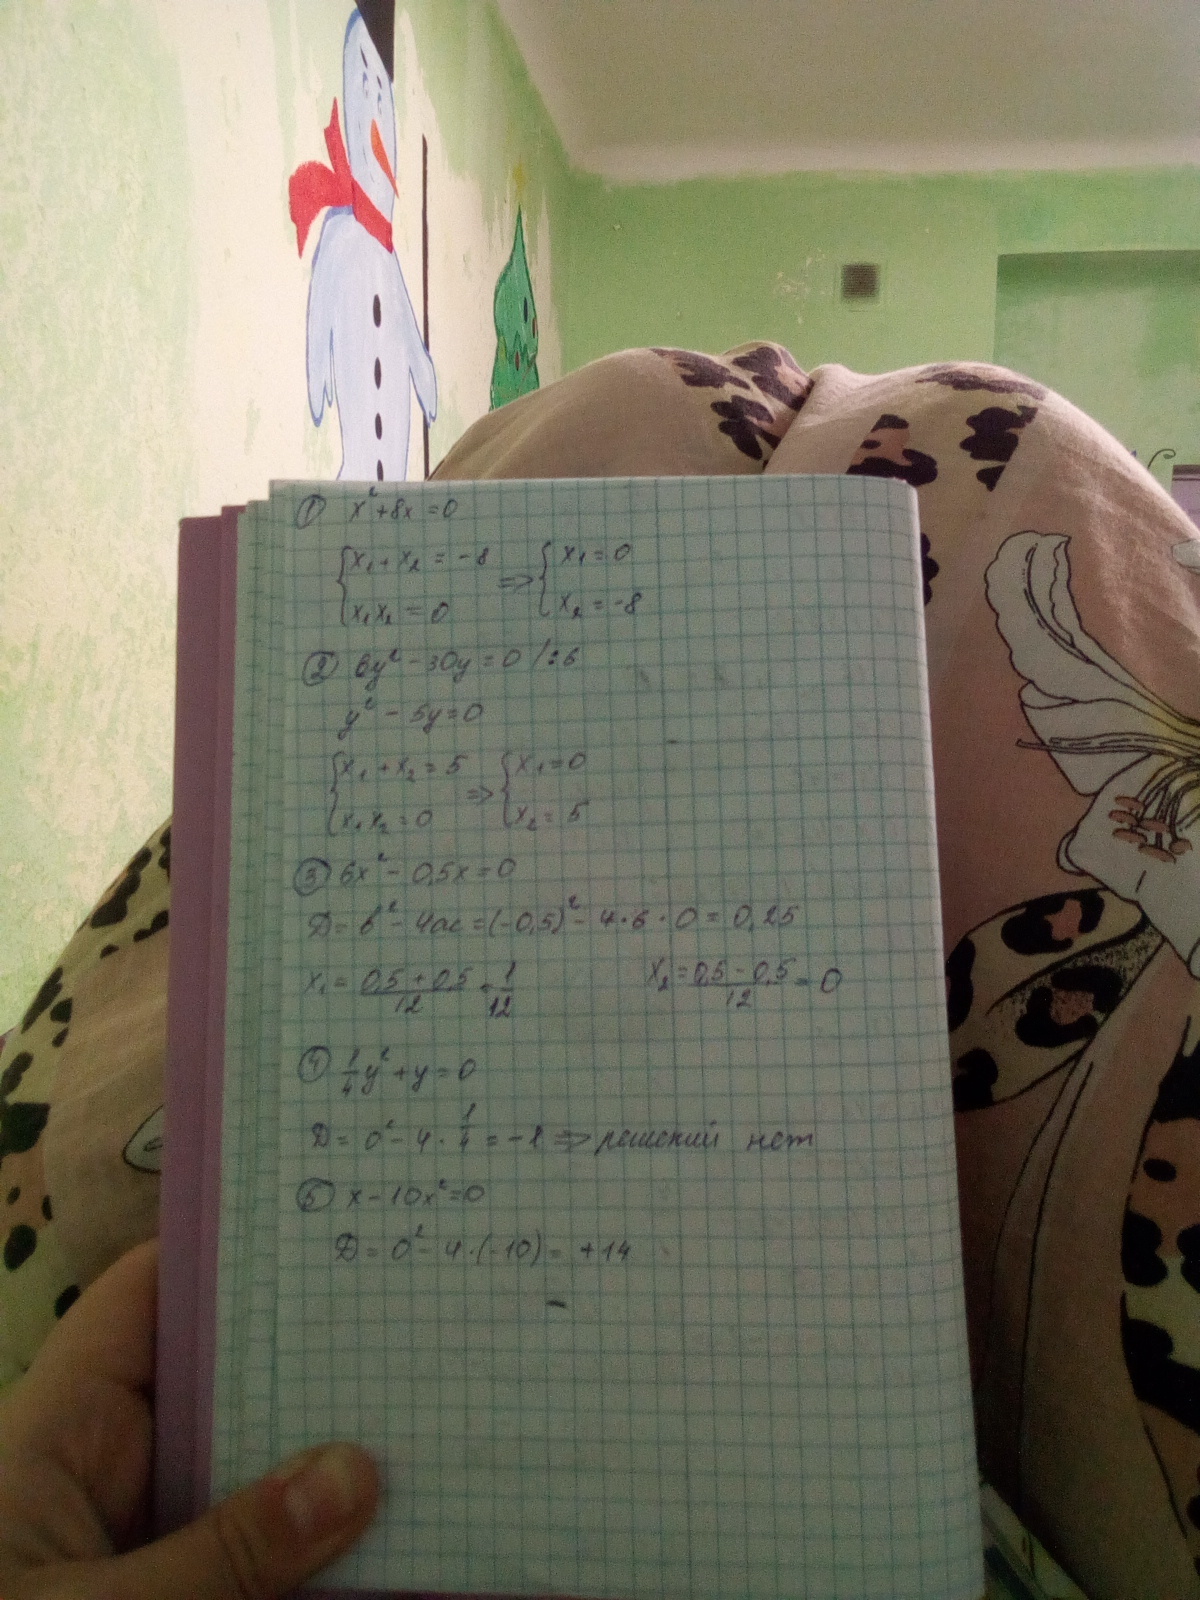 ① x² + 8x = 0
{ x₁ + x₂ = -8 ⇒ { x₁ = 0
{ x₁x₂ = 0 { x₂ = -8
② 6y² - 30y = 0 /:6
y² - 5y = 0
{ x₁ + x₂ = 5 ⇒ { x₁ = 0
{ x₁x₂ = 0 { x₂ = 5
③ 6x² - 0,5x = 0
D = b² - 4ac = (-0,5)² - 4·6·0 = 0,25
x₁ = (0,5 + 0,5)/12 = 1/12 x₂ = (0,5 - 0,5)/12 = 0
④ 1/4 y² + y = 0
D = 0² - 4·1/4 = -1 ⇒ решений нет
⑤ x - 10x² = 0
D = 0² - 4·(-10) = +14